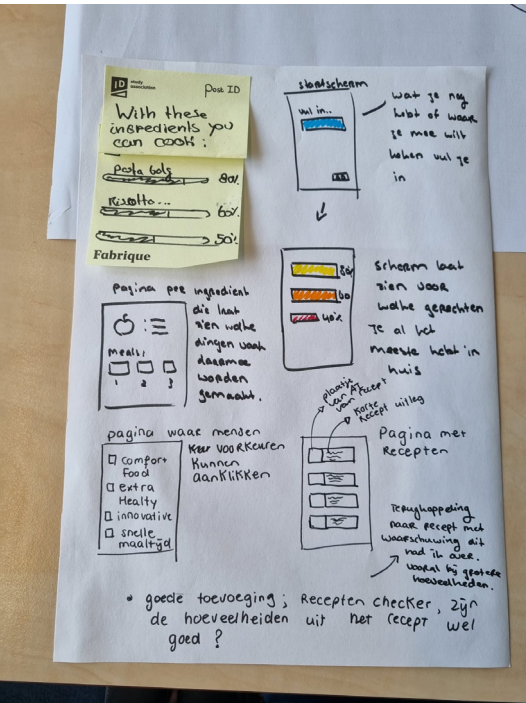 ID
study
association
Post ID
With these
ingredients you
can cook:
Pasta Bolg
80%
Risotto...
60%
50%
Fabrique
startscherm
vul in..
wat je nog
hebt of waar
je mee wilt
koken vul je
in
80%
60
40%
scherm laat
zien voor
welke gerechten
je al het
meeste hebt in
huis
pagina per ingredient
die laat
zien welke
dingen vaak
daarmee
worden
gemaakt.
meals:
1 2 3
pagina waar mensen
voorkeuren
kunnen
aanklikken
comfort
Food
extra
Healty
innovative
snelle
maaltijd
plaatje
van
van recept
korte
Recept uitleg
Pagina met
Recepten
Terugkoppeling
naar recept met
waarschuwing dit
had ik over.
vooral bij grotere
hoeveelheden.
* goede toevoeging; Recepten checker, zijn
de hoeveelheiden uit het recept wel
goed?